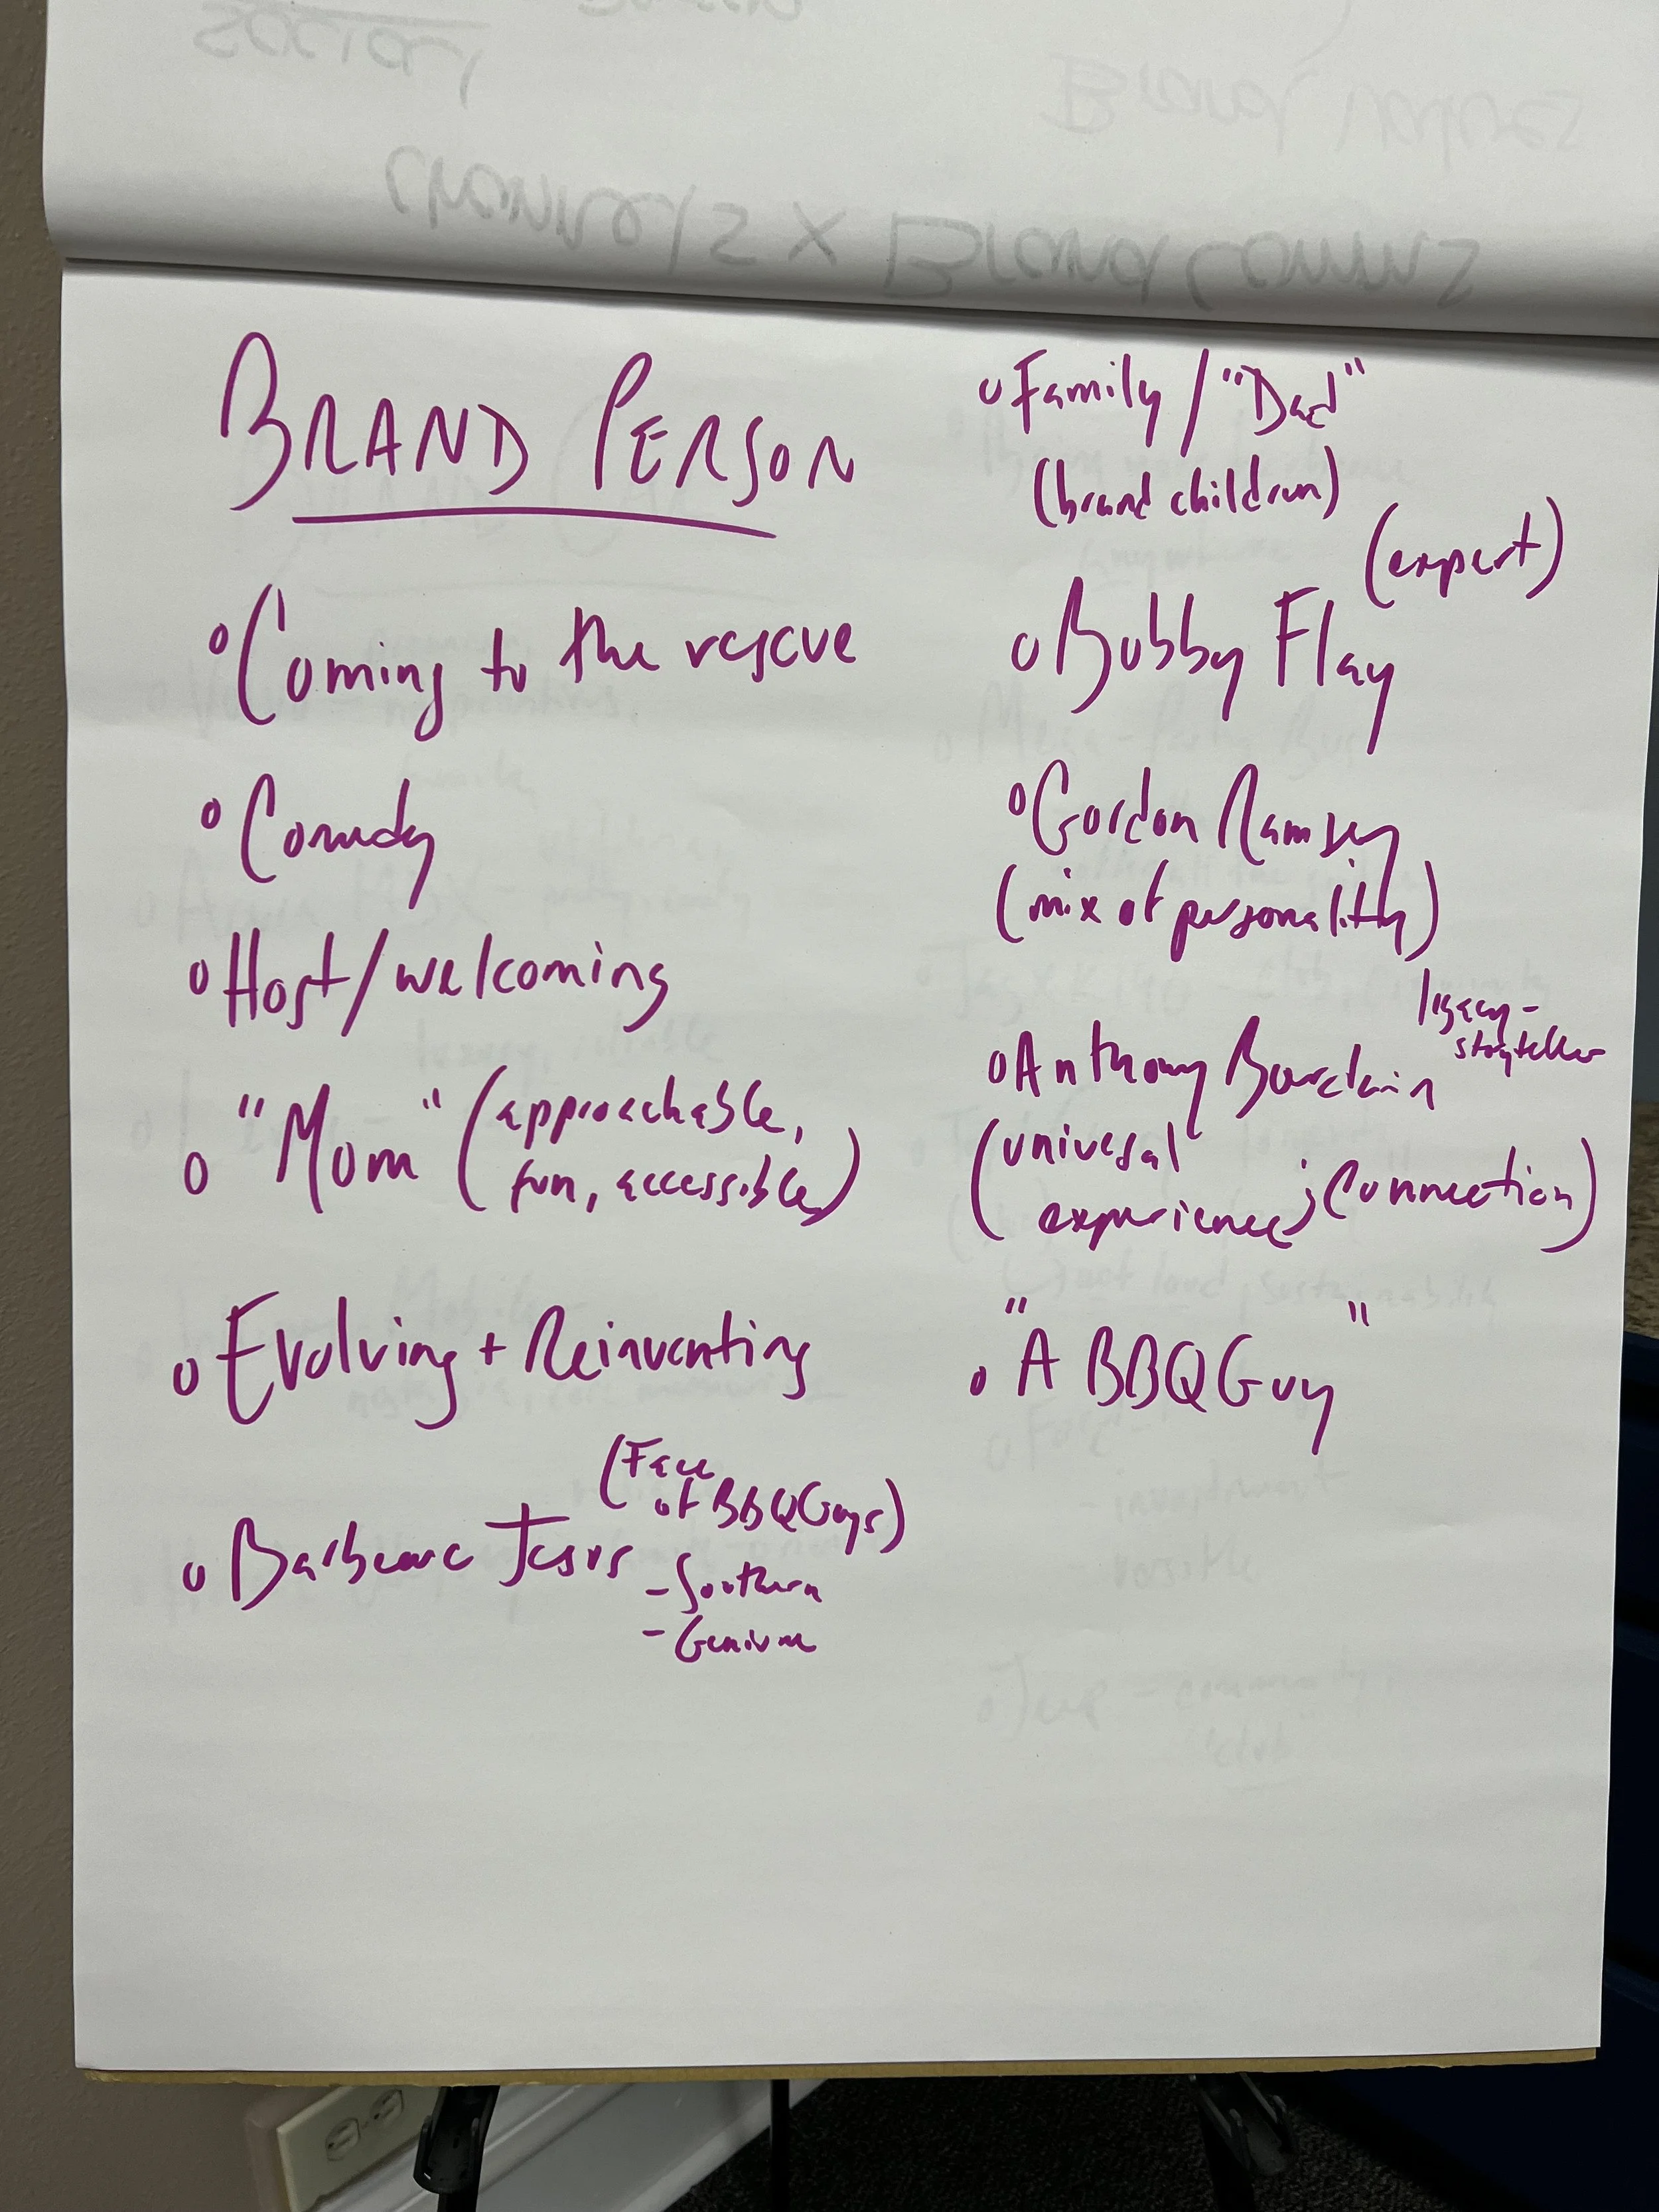 BRAND PERSON
o Coming to the rescue
o Comedy
o Host/welcoming
o "Mom" (approachable,
fun, accessible)
o Evolving + Reinventing
(Face
of BBQGuys)
o Barbecue Jesus
- Southern
- Genuine
o Family / "Dad"
(brand children)
(expert)
o Bobby Flay
o Gordon Ramsey
(mix of personality)
legacy-
storyteller
o Anthony Bourdain
(universal
experience; connection)
o "A BBQ Guy"